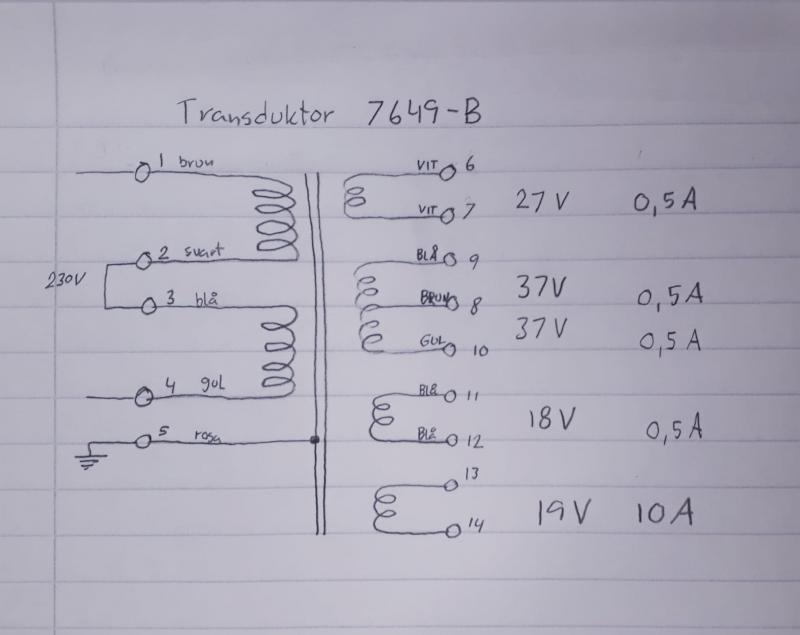 Transduktor 7649-B
1 brun
2 svart
230V
3 blå
4 gul
5 rosa
VIT 6
VIT 7
27V 0,5A
BLÅ 9
37V 0,5A
BRUN 8
37V 0,5A
GUL 10
BLÅ 11
18V 0,5A
BLÅ 12
13
19V 10A
14